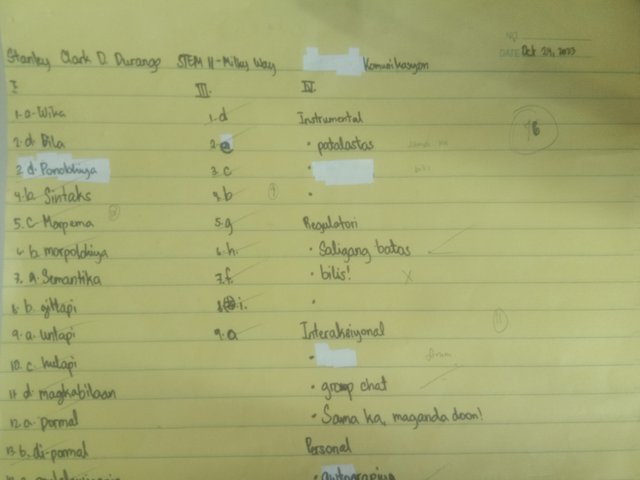 NO.
DATE Oct 24, 2023
Stanley Clark D. Durango STEM 11-Milky Way Komunikasyon
I.
1. a. Wika
2. d. Bila
3. d. Ponolohiya
4. b. Sintaks
5. c. Morpema
6. b. morpolohiya
7. a. Semantika
8. b. gitlapi
9. a. unlapi
10. c. hulapi
11. d. magkabilaan
12. a. pormal
13. b. di-pormal
III.
1. d
2. e
3. c
4. b
5. g
6. h.
7. f.
8. i.
9. a
IV.
Instrumental
• patalastas
•
Regulatori
• Saligang batas
• bilis!
•
Interaksiyonal
•
• group chat
• Sama ka, maganda doon!
Personal